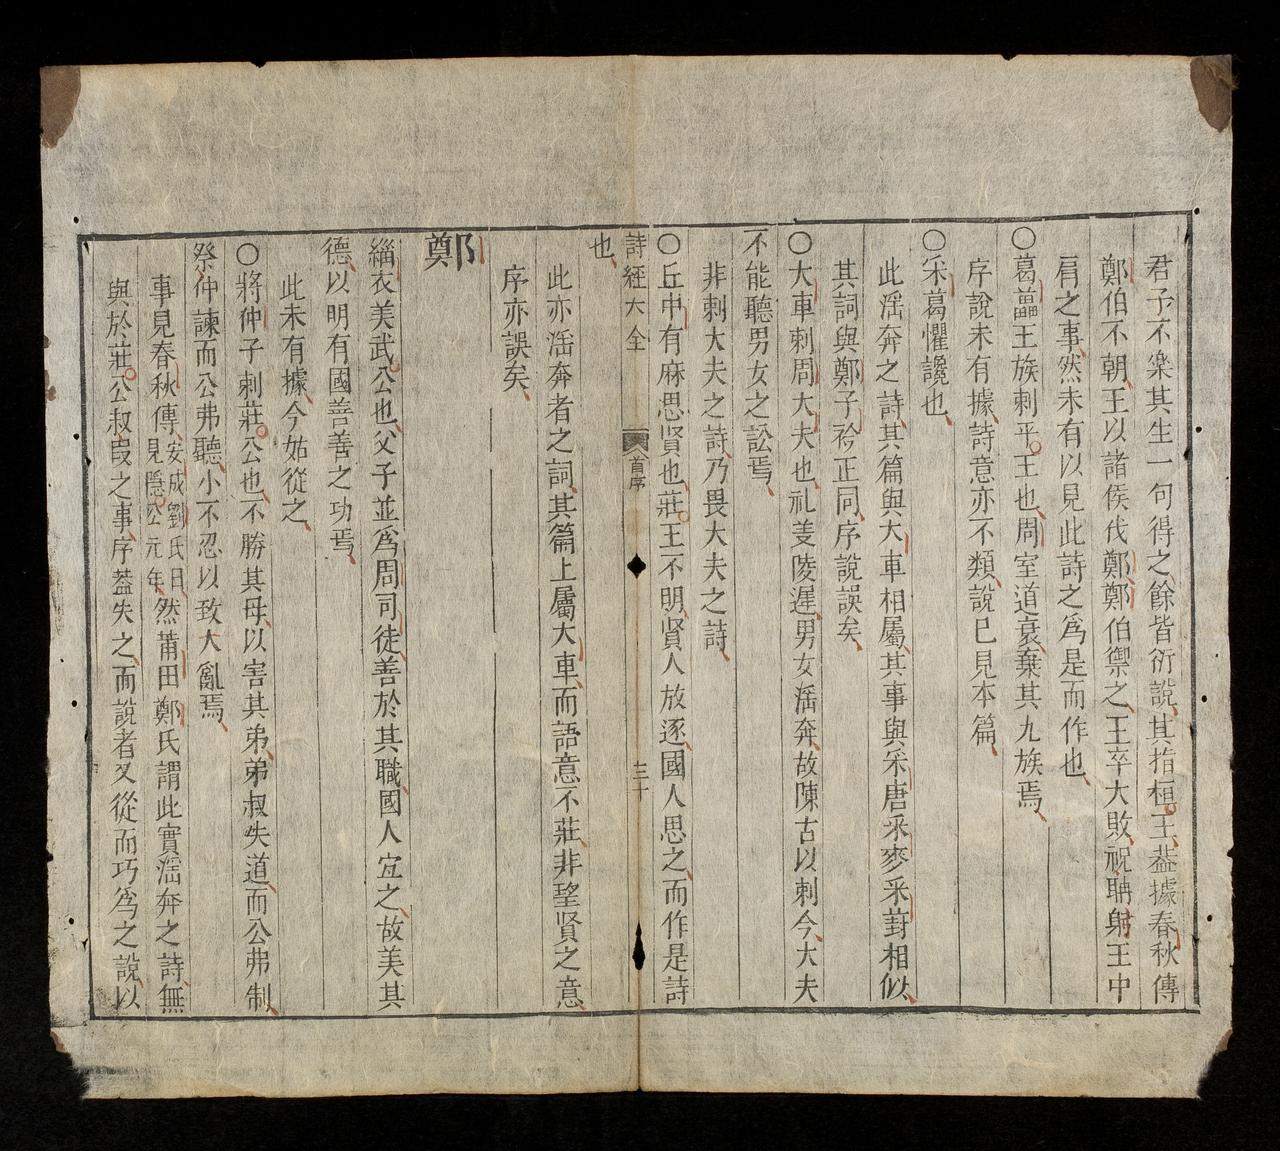 君子不樂其生一句得之餘皆衍說其指桓王葢據春秋傳
鄭伯不朝王以諸侯伐鄭鄭伯禦之王卒大敗祝聃射王中
肩之事然未有以見此詩之爲是而作也
○葛藟王族刺平王也周室道衰棄其九族焉
序說未有據詩意亦不類說已見本篇
○采葛懼讒也
此滛奔之詩其篇與大車相屬其事與采唐采麥采葑相似
其詞與鄭子衿正同序說誤矣
○大車刺周大夫也礼義陵遲男女滛奔故陳古以刺今大夫
不能聽男女之訟焉
非刺大夫之詩乃畏大夫之詩
○丘中有麻思賢也莊王不明賢人放逐國人思之而作是詩
詩經大全 首序 三十
也
此亦滛奔者之詞其篇上屬大車而語意不莊非望賢之意
序亦誤矣
鄭
緇衣美武公也父子並爲周司徒善於其職國人宜之故美其
德以明有國善善之功焉
此未有據今姑從之
○將仲子刺莊公也不勝其母以害其弟弟叔失道而公弗制
祭仲諫而公弗聽小不忍以致大亂焉
事見春秋傳安成劉氏曰見隱公元年然莆田鄭氏謂此實滛奔之詩無
與於莊公叔叚之事序葢失之而說者又從而巧爲之說以